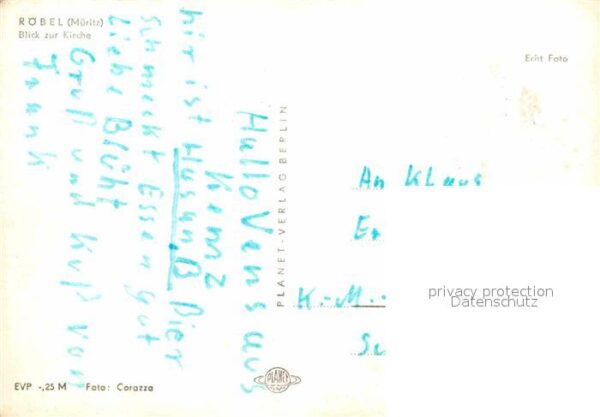 RÖBEL (Müritz)
Blick zur Kirche
Echt Foto
Hallo Vens aus
Kernz
hir ist Husum B Bier
schmeckt Essen gut
Liebe Blüht
Gruß und Kuß von
Frank
PLANET-VERLAG BERLIN
An Klaus
K.-M.-
privacy protection
Datenschutz
EVP -,25 M Foto: Corazza
PLANET